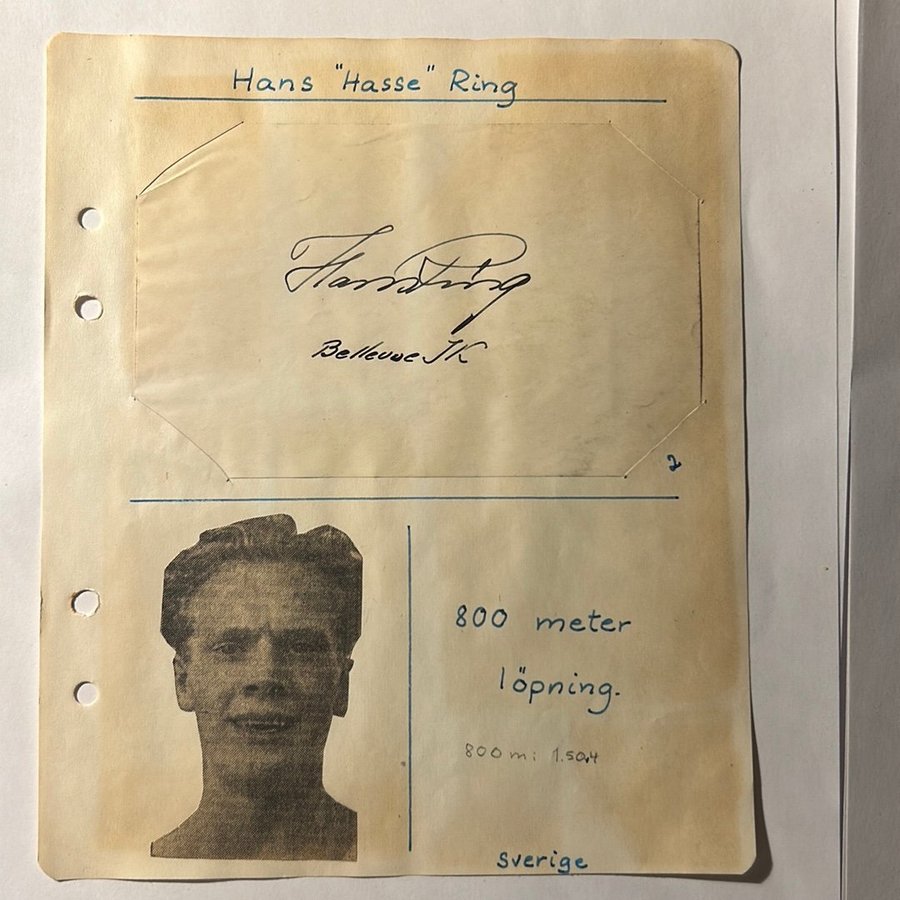 Hans "Hasse" Ring
Hans Ring
Bellevue IK
2
800 meter
löpning.
800 m: 1.50,4
Sverige